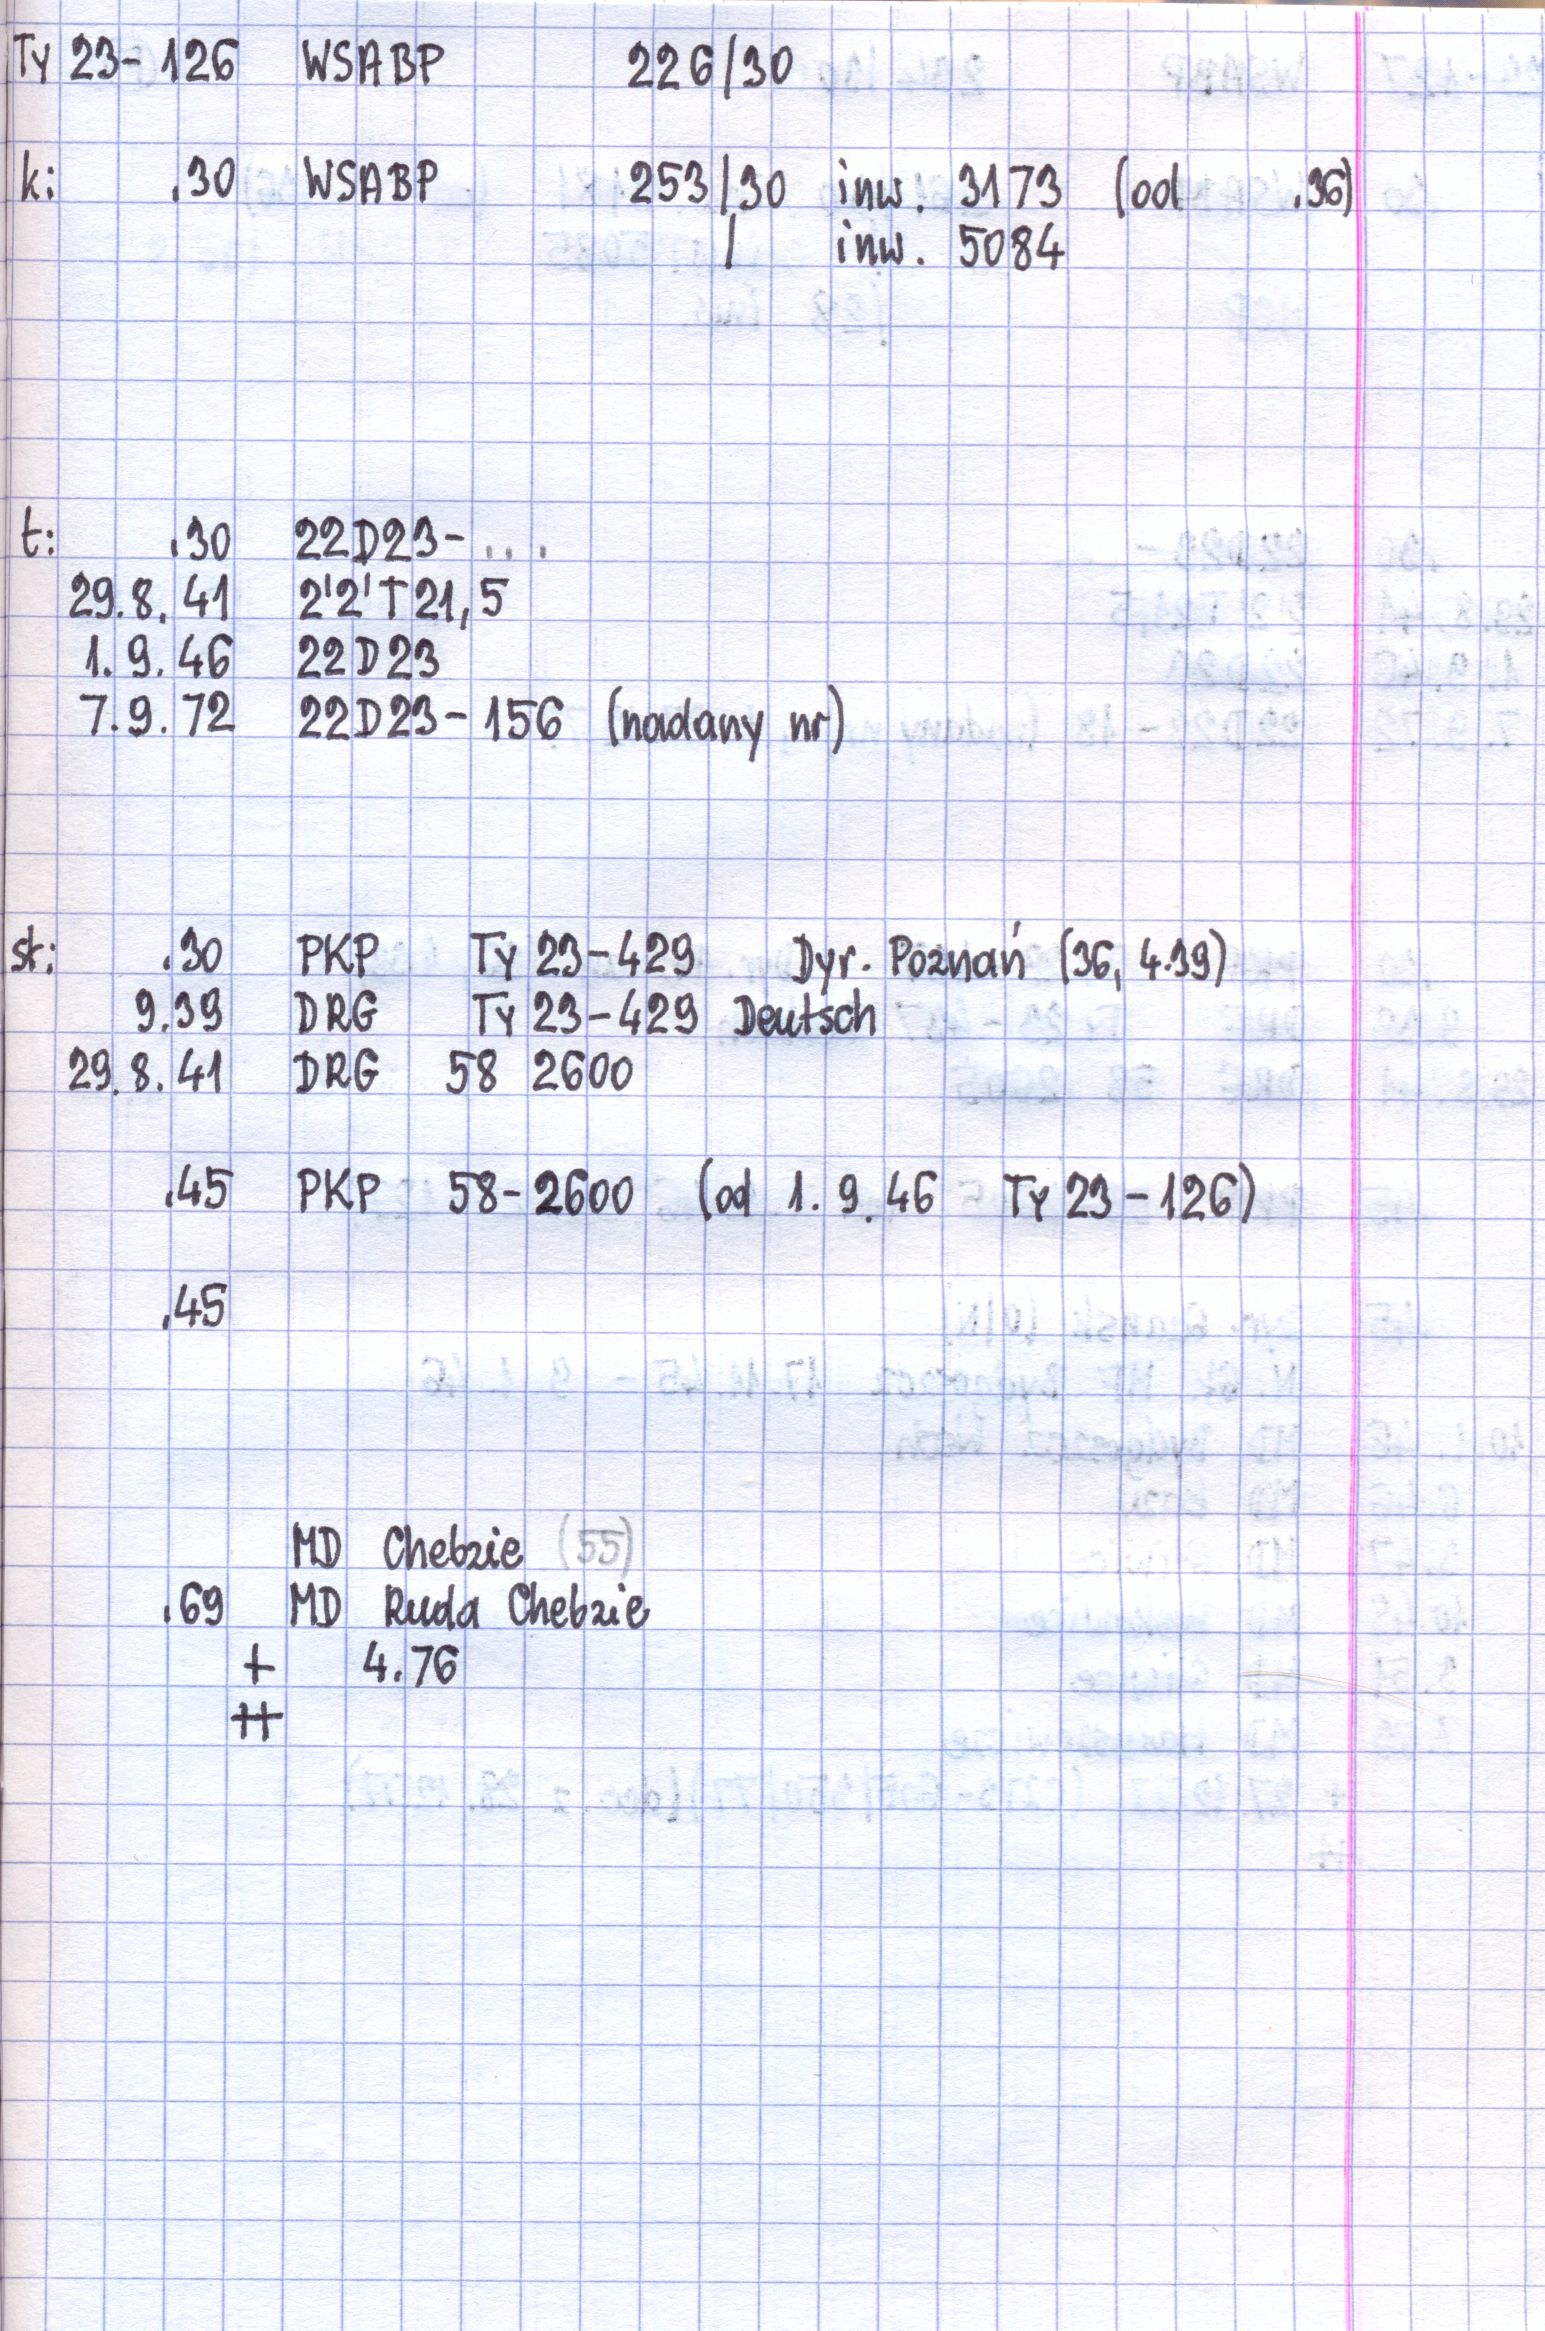 Ty 23-126 WSABP 226/30
k: .30 WSABP 253/30 inw. 3173 (od .36)
/ inw. 5084
t: .30 22D23-...
29.8.41 2'2'T21,5
1.9.46 22D23
7.9.72 22D23-156 (nadany nr)
st: .30 PKP Ty 23-429 Dyr. Poznań (36, 4.39)
9.39 DRG Ty 23-429 Deutsch
29.8.41 DRG 58 2600
.45 PKP 58-2600 (od 1.9.46 Ty 23-126)
.45
MD Chebzie (55)
.69 MD Ruda Chebzie
+ 4.76
++